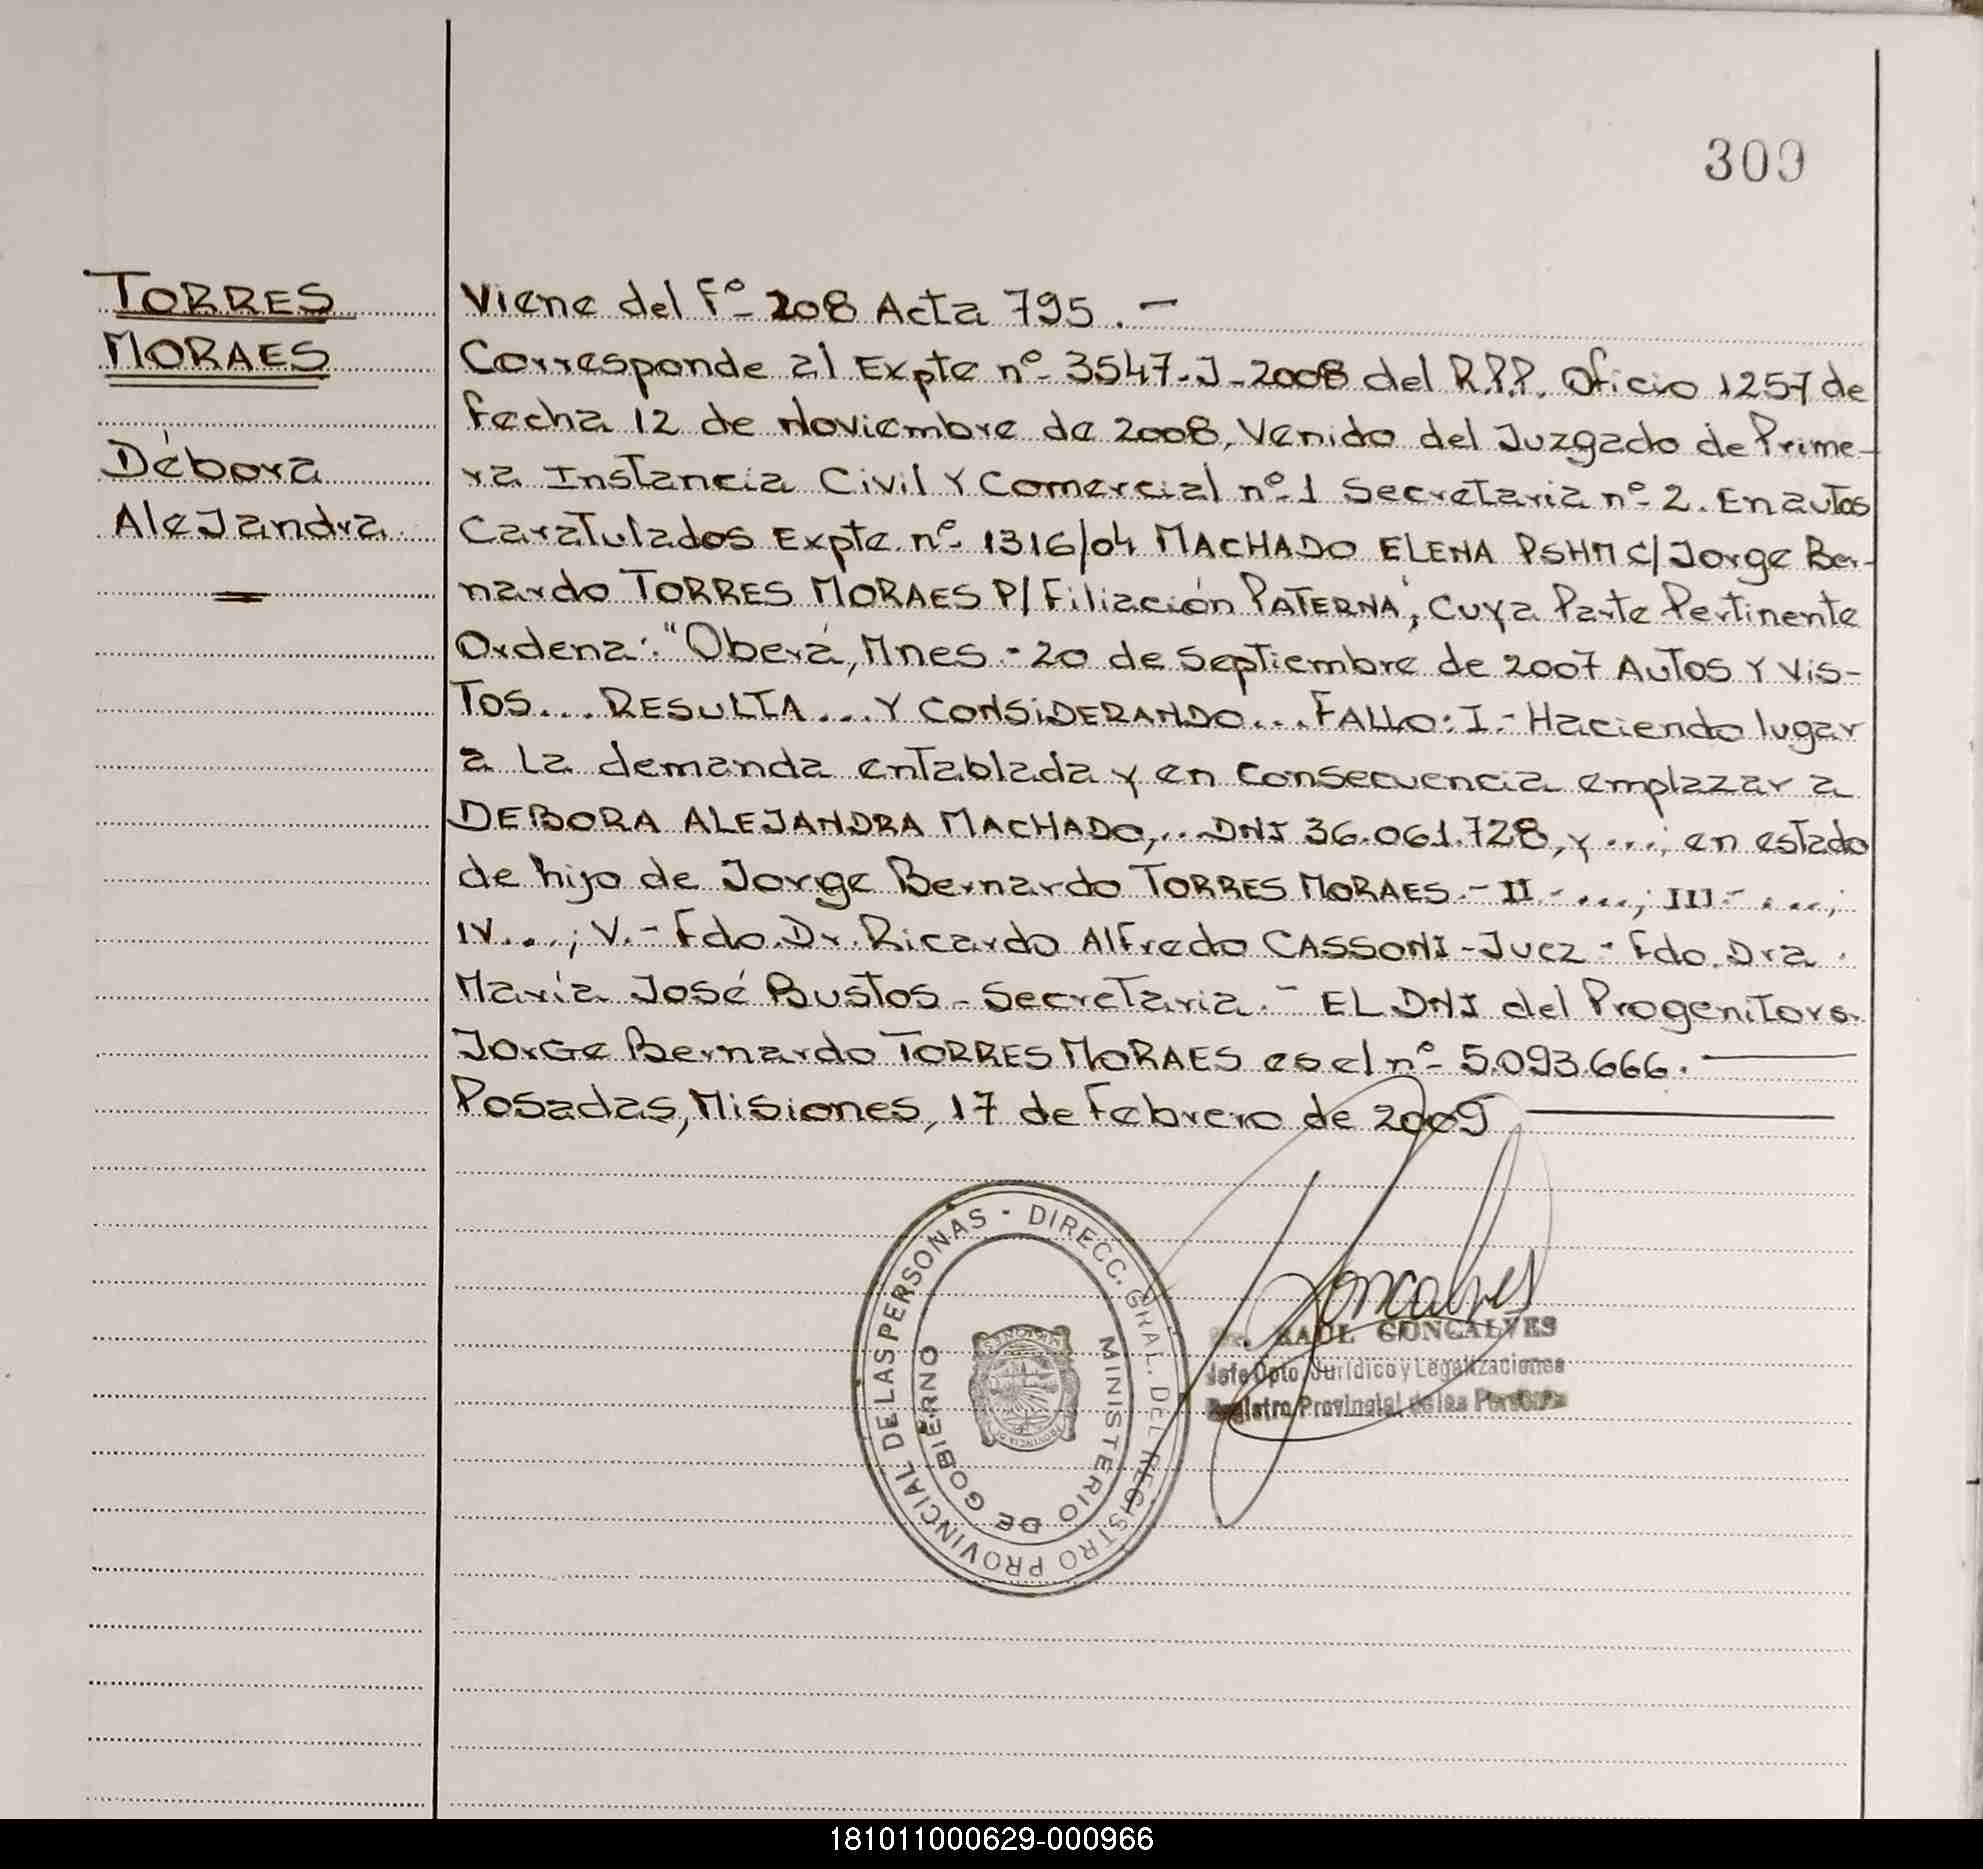 309
TORRES
MORAES
Débora
Alejandra
Viene del Fº 208 Acta 795.-
Corresponde al Expte nº 3547-J-2008 del R.P.P. Oficio 1257 de
fecha 12 de Noviembre de 2008, Venido del Juzgado de Prime-
ra Instancia Civil Y Comercial nº 1 Secretaria nº 2. En autos
Caratulados Expte. nº 1316/04 MACHADO ELENA PSHM C/ Jorge Ber-
nardo TORRES MORAES P/ Filiación PATERNA", Cuya Parte Pertinente
Ordena: "Oberá, Mnes.- 20 de Septiembre de 2007 AUTOS Y VIS-
TOS... RESULTA... Y CONSIDERANDO... FALLO: I.- Haciendo lugar
a La demanda entablada y en Consecuencia emplazar a
DEBORA ALEJANDRA MACHADO,... DNI 36.061.728, y ...; en estado
de hijo de Jorge Bernardo TORRES MORAES.- II.- ...; III.- ...;
IV...; V.- Fdo. Dr. Ricardo Alfredo CASSONI - Juez - Fdo. Dra.
María José Bustos - Secretaria.- EL DNI del Progenitor
Jorge Bernardo TORRES MORAES es el nº 5.093.666.
Posadas, Misiones, 17 de Febrero de 2009
DIRECC. GRAL. DEL REGISTRO PROVINCIAL DE LAS PERSONAS
MINISTERIO DE GOBIERNO
Goncalves
RAUL GONCALVES
Jefe Dpto. Jurídico y Legalizaciones
Registro Provincial de las Personas
181011000629-000966